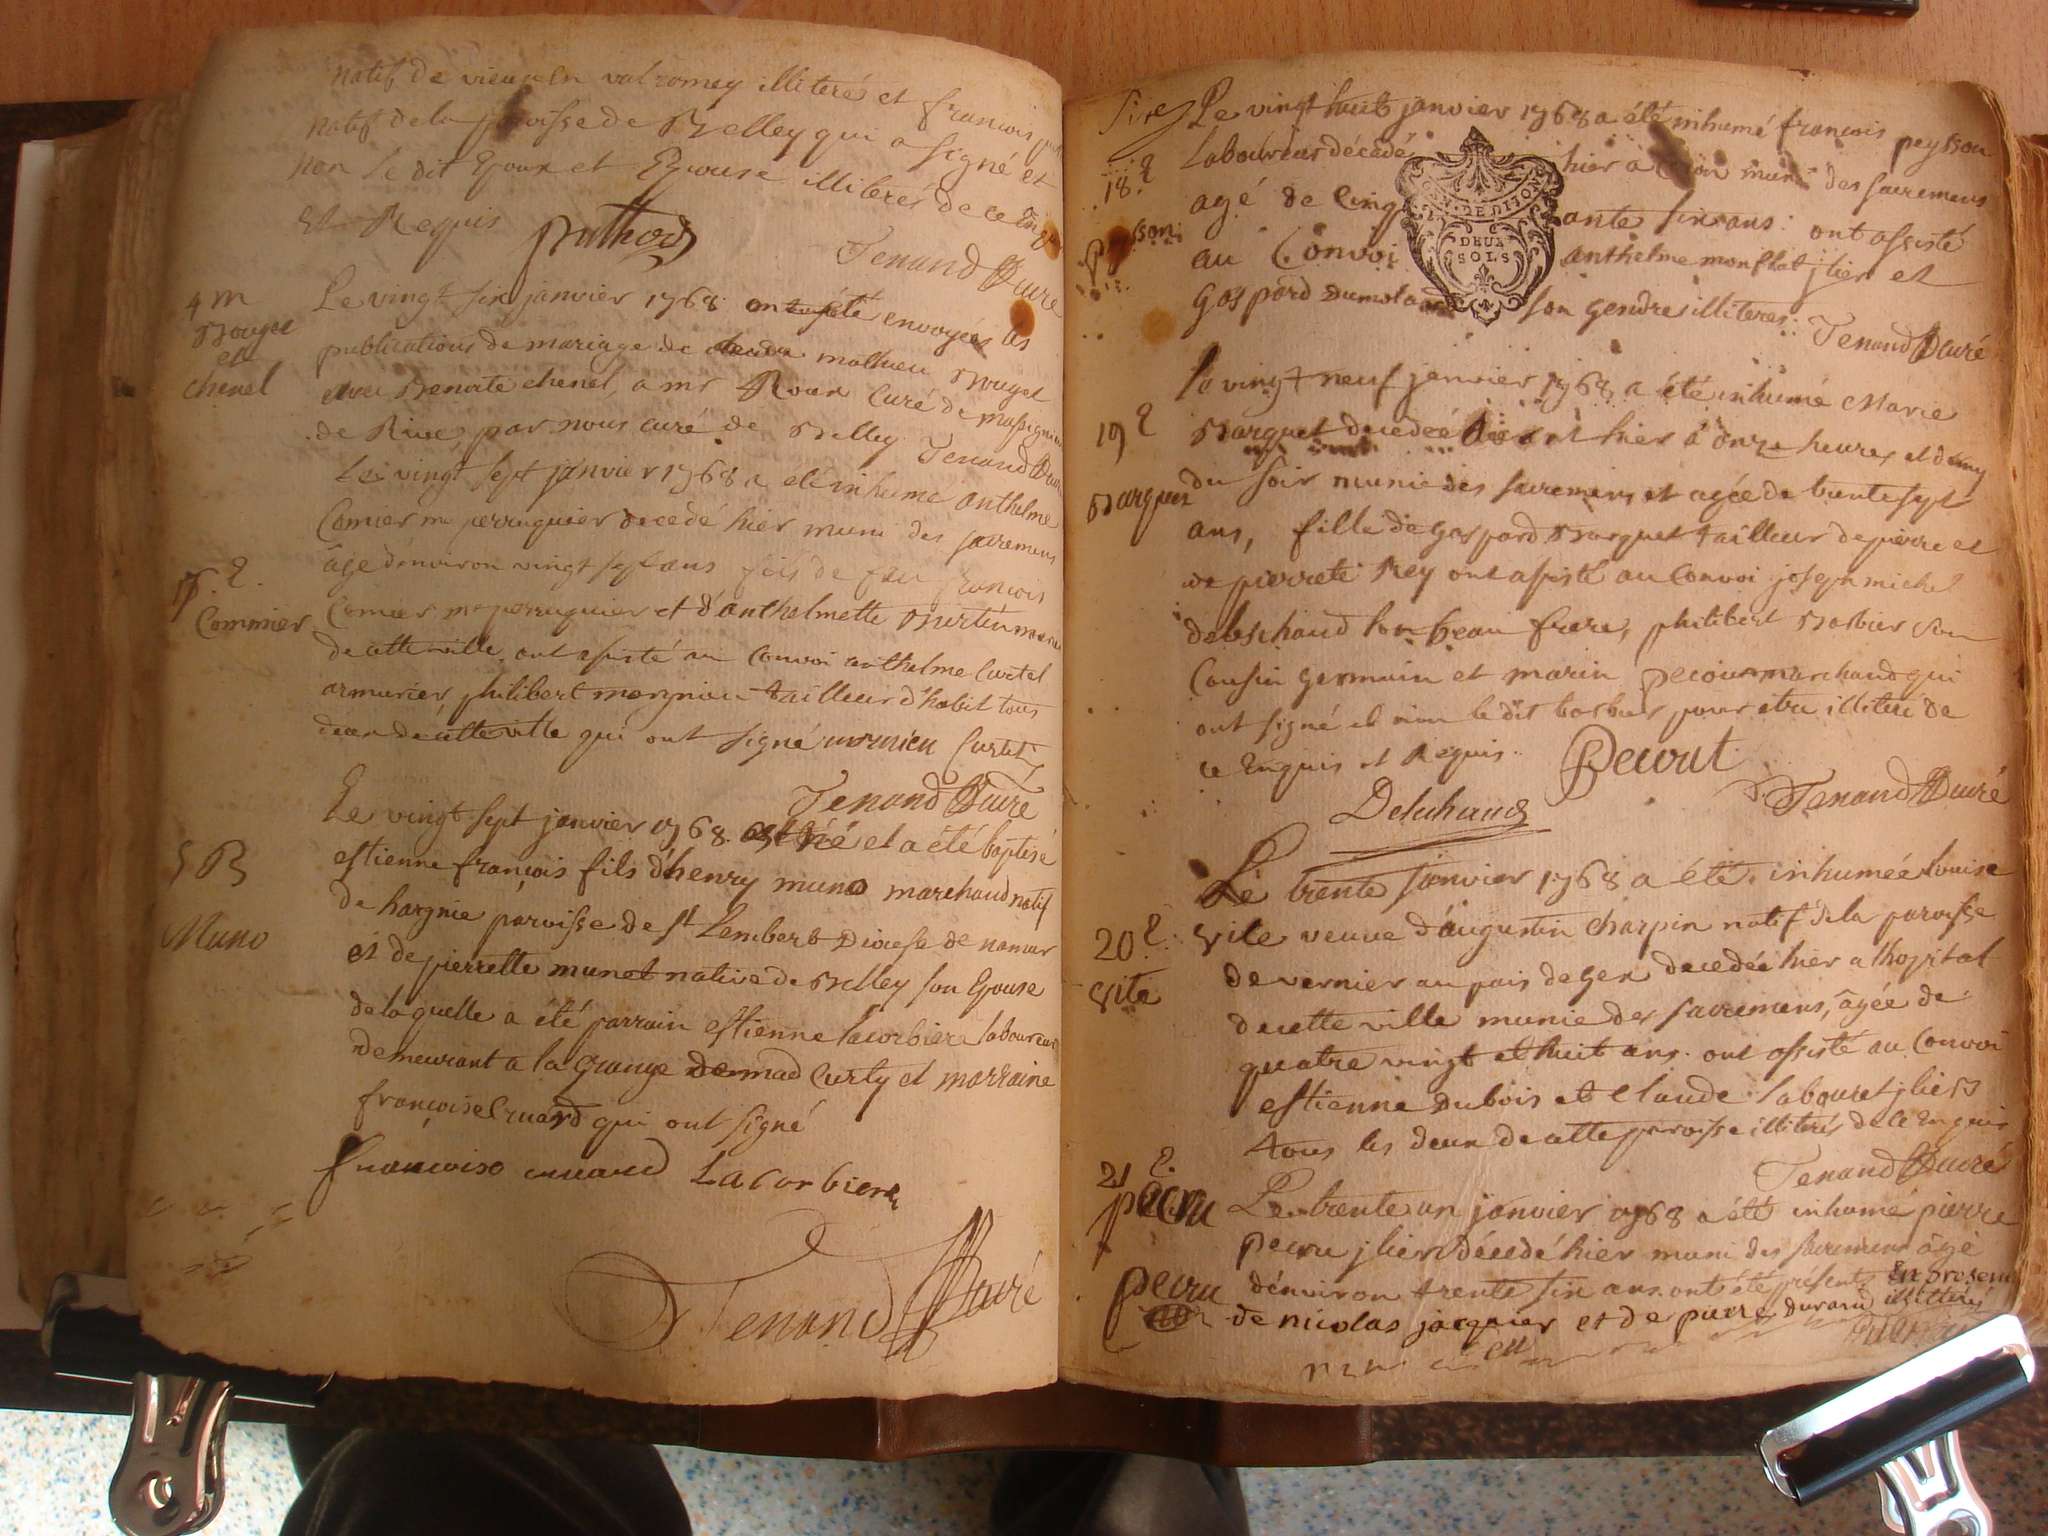 natif de vieu en valromey illiterés et francois
natif de la paroisse de Belley qui a signé et
non le dit Epoux et Epouse illiterés de ce Enquis
et Requis
Tenand Curé
4 m
Bouget
et
chenel
Le vingt six janvier 1768 ont eté envoyées les
publications de mariage de mathieu Bouget
avec Benoite chenel, a mr Roux Curé de massignieu
de Rive par nous curé de Belley Tenand Curé
17. S.
Commier
Le vingt sept janvier 1768 a eté inhumé anthelme
Comier me perruquier decedé hier muni des sacremens
âgé d'environ vingt sept ans fils de feu francois
Comier me perruquier et d'anthelmette Burtin
de cette ville ont assisté au convoi anthelme Curtet
armurier, philibert morgnieu tailleur d'habit tous
deux de cette ville qui ont signé mornieu Curtet
Tenand Curé
5 B
Muno
Le vingt sept janvier 1768 est né et a été baptisé
estienne françois fils d'henry muno marchand natif
de hargnie paroisse de st Lembert Diocese de namur
et de pierrette munet native de Belley son Epouse
de laquelle a été parrain estienne lacorbiere laboureur
demeurant a la grange de mad Curty et marraine
françoise cruard qui ont signé
françoise cruard Lacorbiere
Tenand Curé
18. S.
Le vingt huit janvier 1768 a été inhumé françois peysson
Laboureur décédé hier a muni des sacremens
agé de cinquante six ans: ont assisté
au Convoi anthelme monflat jlier et
Gaspard Dumolard son gendre illiteres:
Tenand Curé
DE DIJON
DEUX
SOLS
19 S
Barquet
Le vingt neuf janvier 1768 a été inhumé Marie
Barquet decedée hier à onze heures et demy
du soir munie des sacremens et agée de trente sept
ans, fille de Gaspard Barquet tailleur de pierre et
de pierrete Rey ont assisté au Convoi joseph michel
deleschaud son beau frere, philibert Barbier son
Cousin germain et marin pecout marchand qui
ont signé et non le dit barbier pour etre illiteré de
ce Enquis et Requis. Pecout
Delechaud
Tenand Curé
20 S.
Vite
Le trente janvier 1768 a été inhumée louise
Vite veuve d'augustin charpin natif de la paroisse
de vernier au païs de gex decedée hier a l'hopital
de cette ville munie des sacremens, âgée de
quatre vingt et huit ans. ont assisté au Convoi
estienne Dubois et claude labouret jliers
tous les deux de cette paroisse illiterés de ce Enquis
Tenand Curé
21 S.
pecru
pecru
Le trente un janvier 1768 a été inhumé pierre
pecru jlier décedé hier muni des sacremens âgé
d'environ trente six ans ont été présents En presence
de nicolas jacquier et de pierre durand illitterés